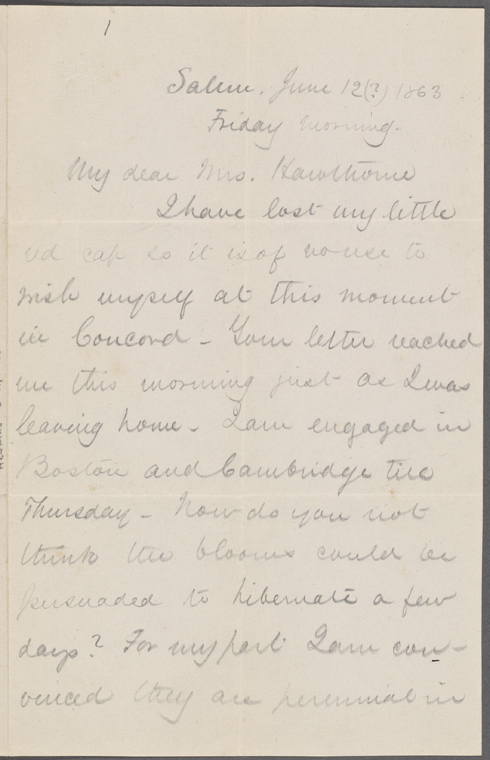 1
Salem. June 12(?) 1863
Friday morning.
My dear Mrs. Hawthorne
I have lost my little
red cap so it is of no use to
wish myself at this moment
in Concord - Your letter reached
me this morning just as I was
leaving home. I am engaged in
Boston and Cambridge till
Thursday - Now do you not
think the blooms could be
persuaded to hibernate a few
days? For my part I am con-
vinced they are perennial in